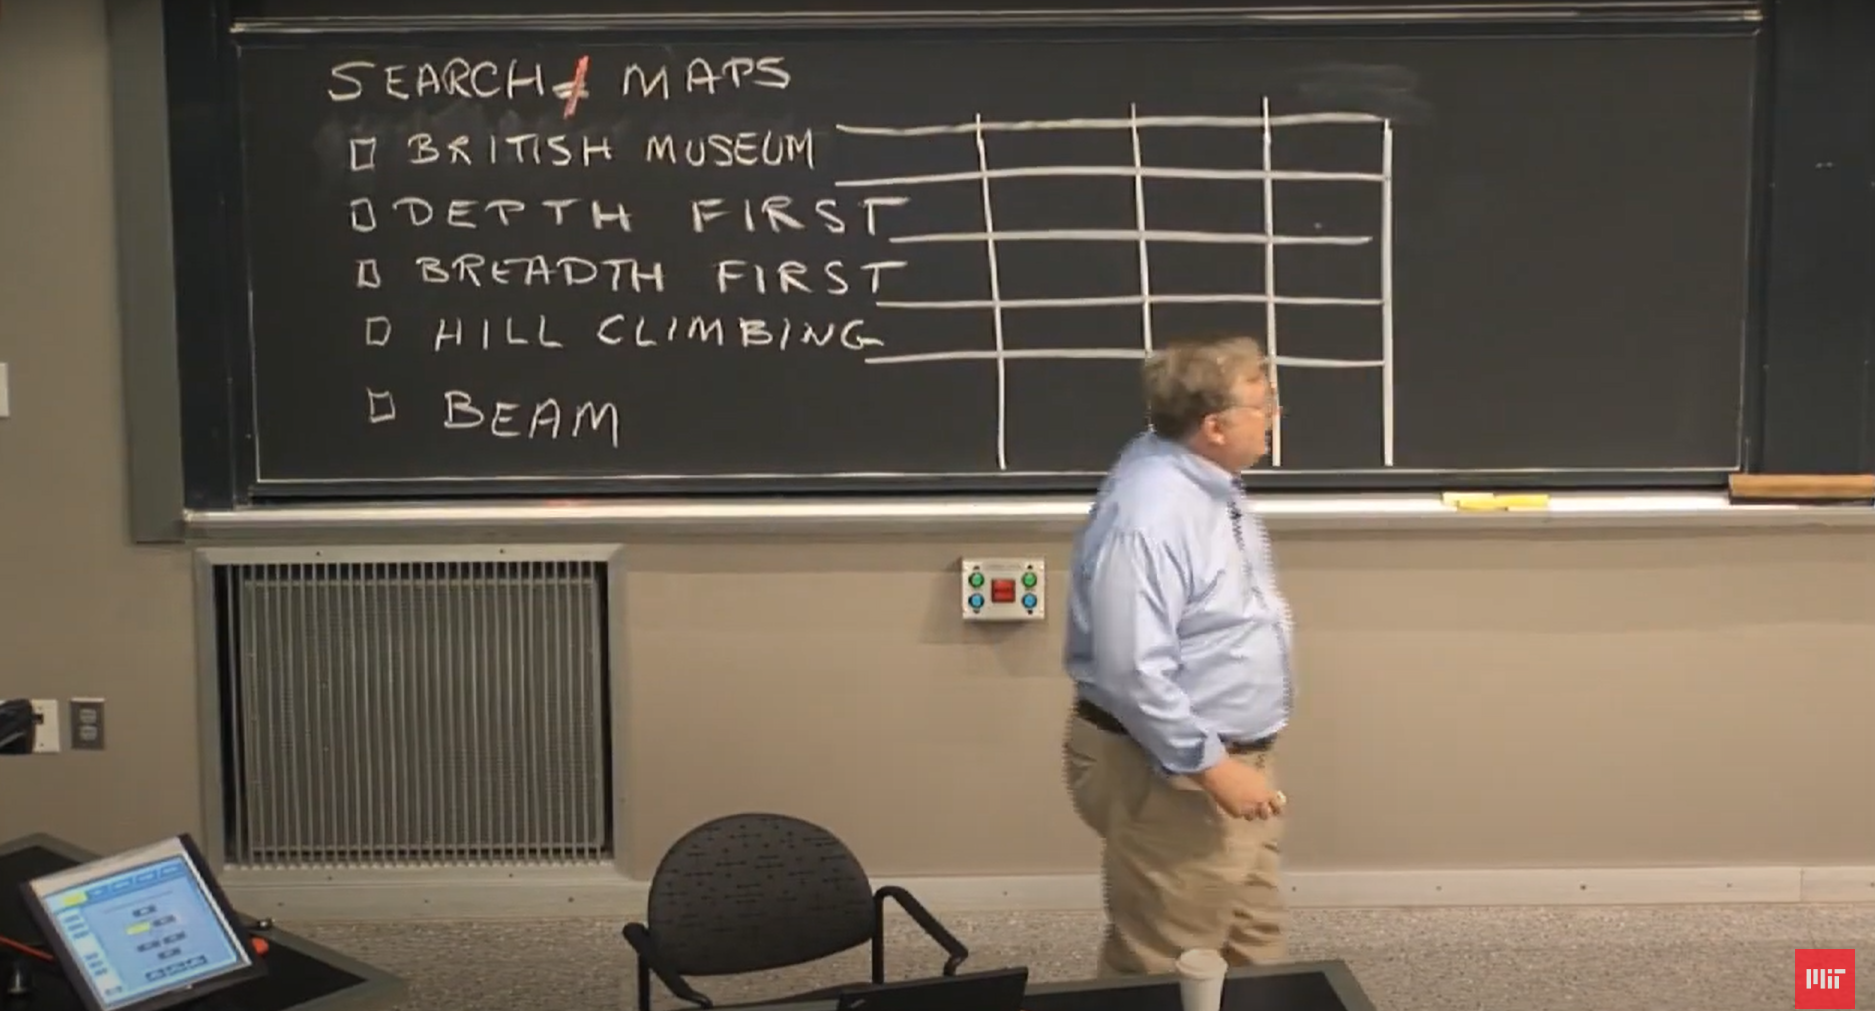 SEARCH ≠ MAPS
BRITISH MUSEUM
DEPTH FIRST
BREADTH FIRST
HILL CLIMBING
BEAM
MIT